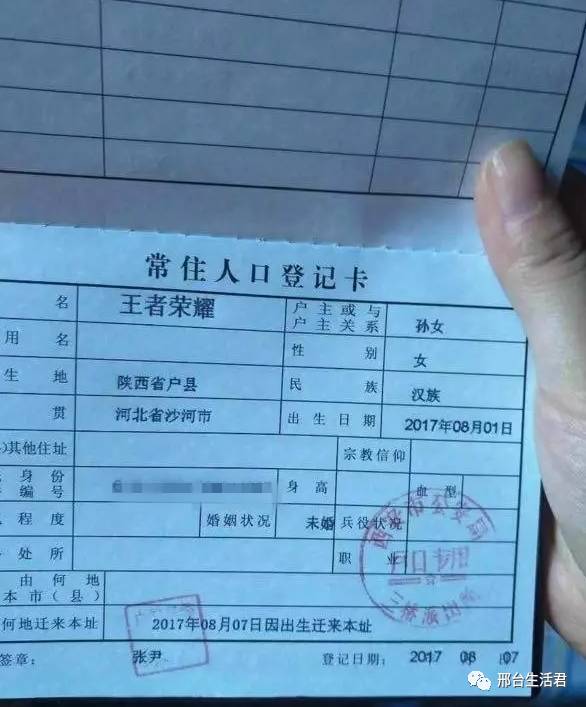 常住人口登记卡
名 王者荣耀 户主或与户主关系 孙女
用名 性别 女
生地 陕西省户县 民族 汉族
贯 河北省沙河市 出生日期 2017年08月01日
)其他住址 宗教信仰
身份编号 6 身高 血型
程度 婚姻状况 未婚 兵役状况
处所 职业
由何地
本市(县)
何地迁来本址 2017年08月07日因出生迁来本址
签章: 张尹 登记日期: 2017 08 07
户口专用
邢台生活君